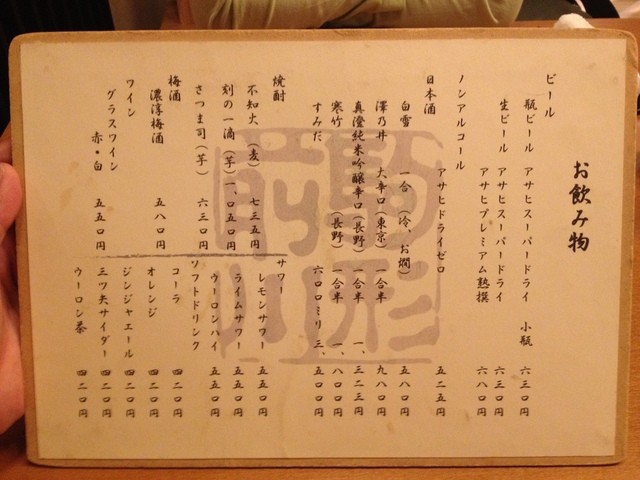 お飲み物
ビール
瓶ビール アサヒスーパードライ 小瓶 六三〇円
生ビール アサヒスーパードライ 六三〇円
アサヒプレミアム熟撰 六八〇円
ノンアルコール
アサヒドライゼロ 五二五円
日本酒
白雪 一合(冷、お燗) 五八〇円
澤乃井 大辛口(東京) 一合半 九八〇円
真澄純米吟醸辛口(長野) 一合半 一、三二三円
寒竹 (長野) 一合半 一、八〇〇円
すみだ 六〇〇ミリ 三、五〇〇円
焼酎
不知火 (麦) 七三五円
刻の一滴 (芋) 一、〇五〇円
さつま司 (芋) 六三〇円
梅酒
濃淳梅酒 五八〇円
ワイン
グラスワイン 赤・白 五五〇円
サワー
レモンサワー 五五〇円
ライムサワー 五五〇円
ウーロンハイ 五五〇円
ソフトドリンク
コーラ 四二〇円
オレンジ 四二〇円
ジンジャエール 四二〇円
三ツ矢サイダー 四二〇円
ウーロン茶 四二〇円
駒形
前川